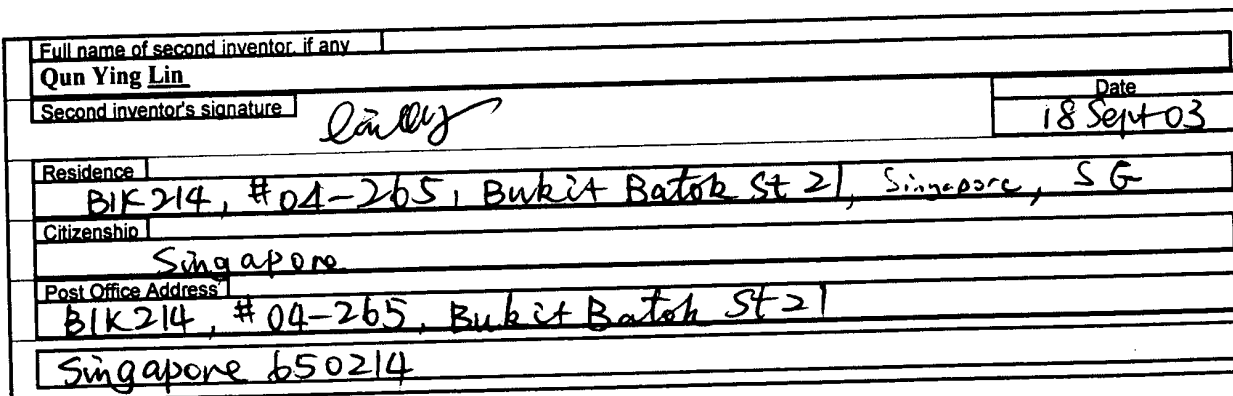 Full name of second inventor, if any
Qun Ying Lin
Second inventor's signature
Date
18 Sept 03
Residence
Blk 214, #04-265, Bukit Batok St 21, Singapore, SG
Citizenship
Singapore
Post Office Address
Blk 214, #04-265, Bukit Batok St 21
Singapore 650214